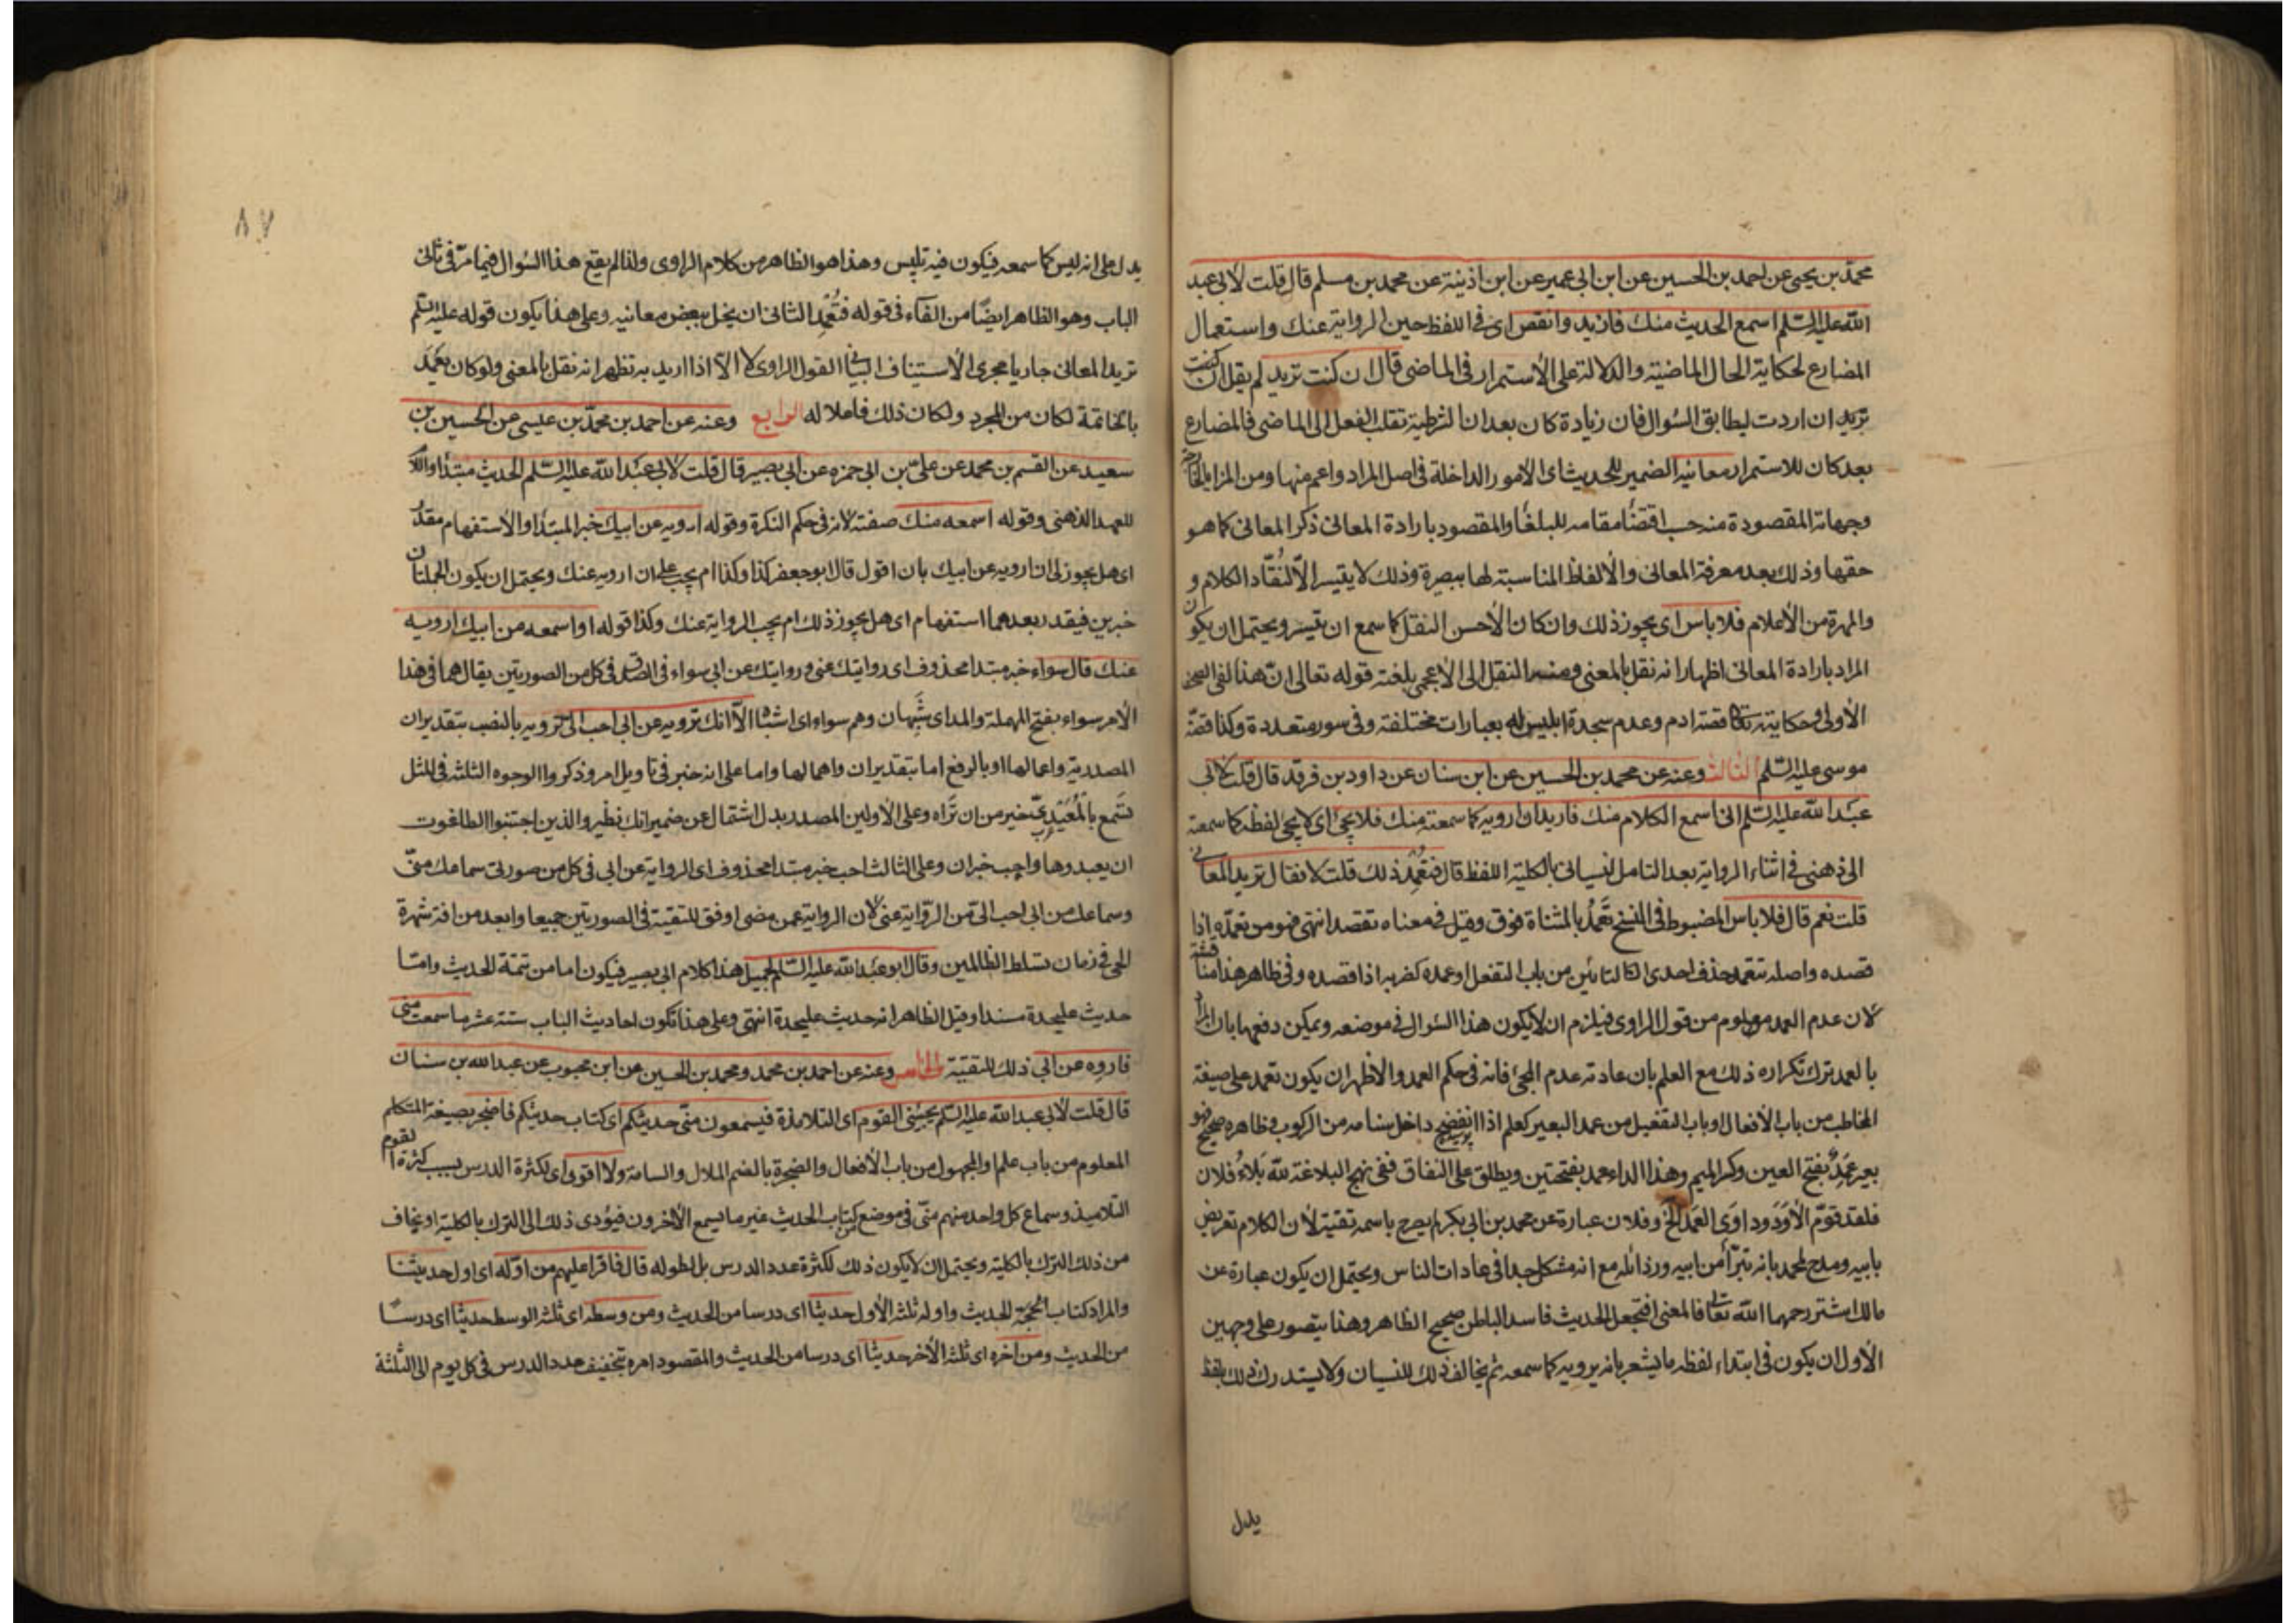 محمّد بن يحيى عن احمد بن الحسين عن ابن ابى عمير عن ابن اذينة عن محمد بن مسلم قال قلت لأبى عبد
اللّه عليه السّلم اسمع الحديث منك فازيد وانقص اى فى اللفظ حين الرواية عنك واستعمال
المضارع لحكاية الحال الماضية والدلالة على الأستمرار فى الماضى قال ان كنت تريد لم يقل ان كنت
تريد ان اردت ليطابق السّوال فان زيادة كان بعد ان الشرطية تقلب الفعل الى الماضى فالمضارع
بعد كان للاستمرار معانيه الضمير للحديث اى الأمور الداخلة فى اصل المراد واعم منها ومن المزايا
وجهاته المقصودة منه حسب اقتضا مقامه للبلغا والمقصود بارادة المعانى ذكر المعانى كما هو
حقها وذلك بعد معرفة المعانى والألفاظ المناسبة لها ببصيرة وذلك لا يتيسر الّا لنُقّاد الكلام و
والمهرة من الأعلام فلا باس اى يجوز ذلك وان كان الأحسن النقل كما سمع ان تيسر ويحتمل ان يكون
المراد بارادة المعانى اظهار انه نقل بالمعنى ومنه النقل الى الأعجمى بلغته قوله تعالى انّ هذا لفى الصحف
الأولى وحكايته تعالى قصة ادم وعدم سجدة ابليس له بعبارات مختلفة وفى سور متعددة وكذا قصّة
موسى عليه السّلم الثالث وعنه عن محمد بن الحسين عن ابن سنان عن داود بن فرقد قال قلت لأبى
عبد اللّه عليه السّلم انى اسمع الكلام منك فاريد ان ارويه كما سمعته منك فلا يجئ اى لا يجئ لفظه كما سمعته
الى ذهنى فى اثناء الرواية بعد التامل لنسيانى بالكلية اللفظ قال فتعمّد ذلك قلت لا فقال تريد المعانى
قلت نعم قال فلا باس المضبوط فى النسخ تَعَمَّدُ بالمثناة فوق وقيل فى معناه تقصد انتهى فهو من تعمّده اذا
قصده واصله تتعمد حذف احدى التائين من باب التفعل او عمده كضربه اذا قصده وفى ظاهر هذا مناقشة
لأن عدم العمد معلوم من قول الراوى فيلزم ان لا يكون هذا السّوال فى موضعه ويمكن دفعها بان المراد
بالعمد ترك تكراره ذلك مع العلم بان عادته عدم المجئ فانه فى حكم العمد والأظهر ان يكون تعمد على صيغة
المخاطب من باب الأفعال او باب التفعيل من عمد البعير كعلم اذا انفضح داخل سنامه من الركوب وظاهره صحيح فهو
بعير عَمِدٌ بفتح العين وكسر الميم وهذا الداء عمد بفتحتين ويطلق على النفاق ففى نهج البلاغة للّه بَلاءُ فلان
فلقد قوّم الأَوَدَ وداوَى العَمَدَ الخ وفلان عبارة عن محمد بن ابى بكر لم يصرح باسمه تقية لأن الكلام تعريض
بابيه ومدح لمحمد بانه تبرّأ من ابيه ورذائله مع انه مشكل جدا فى عادات الناس ويحتمل ان يكون عبارة عن
مالك اشتر رحمهما اللّه تعالى فالمعنى افتجعل الحديث فاسد الباطن صحيح الظاهر وهذا يتصور على وجهين
الأول ان يكون فى ابتداء لفظه ما يشعر بانه يرويه كما سمعه ثم يخالف ذلك للنسيان ولا يستدرك ذلك بلفظ
يدل
٨٧
يدل على انه ليس كما سمعه فيكون فيه تلبيس وهذا هو الظاهر من كلام الراوى ولذا لم يقع هذا السّوال فيما مرّ فى ثانى
الباب وهو الظاهر ايضًا من الفاء فى قوله فتُعْمِد الثانى ان يخل ببعض معانيه وعلى هذا يكون قوله عليه السّلم
تريد المعانى جاريا مجرى الأستيناف البيانى القول الراوى لا الا اذا اريد به تظهر انه نقل بالمعنى ولو كان تعَمَّد
بالخاتمة لكان من المجرد ولكان ذلك فاعلا له الرابع وعنه عن احمد بن محمّد بن عيسى عن الحسين بن
سعيد عن القسم بن محمد عن علىّ بن ابى حمزه عن ابى بصير قال قلت لأبى عبد اللّه عليه السّلم الحديث مبتدأ واللام
للعهد الذهنى وقوله اسمعه منك صفته لانه فى حكم النكرة وقوله ارويه عن ابيك خبر المبتدأ والأستفهام مقدر
اى هل يجوز لى ان ارويه عن ابيك بان اقول قال ابو جعفر كذا وكذا ام يجب على ان ارويه عنك ويحتمل ان يكون الجملتان
خبرين فيقدر بعدهما استفهام اى هل يجوز ذلك ام يجب الرواية عنك وكذا قوله او اسمعه من ابيك ارويه
عنك قال سواء خبر مبتدا محذوف اى روايتك عنى وروايتك عن ابى سواء فى الصّدق فى كل من الصورتين يقال هما فى هذا
الأمر سواء بفتح المهملة والمد اى شَبَهان وهم سواء اى اشباه الّا انك ترويه عن ابى احب الىّ ترويه بالنصب بتقدير ان
المصدرية واعمالها او بالرفع اما بتقدير ان واهمالها واما على انه خبر فى تاويل امر وذكروا الوجوه الثلثة فى المثل
تسمع بالمُعَيْدِىّ خير من ان تراه وعلى الأولين المصدر بدل اشتمال عن ضمير انك نظير والذين اجتنبوا الطاغوت
ان يعبدوها واحب خبر ان وعلى الثالث احب خبر مبتدا محذوف اى الرواية عن ابى فى كل من صورتى سماعك منّى
وسماعك من ابى احب الىّ من الرّواية عنى لأن الرواية عمن مضى اوفق للتقية فى الصورتين جميعا وابعد من افة شهرة
الحى فى زمان تسلط الظالمين وقال ابو عبد اللّه عليه السّلم لجميل هذا كلام ابى بصير فيكون اما من تتمة الحديث وامّا
حديث عليحدة مسندا وقيل الظاهر انه حديث عليحدة انتهى وعلى هذا تكون احاديث الباب ستة عشر ما سمعت منّى
فاروه عن ابى ذلك للتقية الخامس وعنه عن احمد بن محمد ومحمد بن الحسين عن ابن محبوب عن عبد الله بن سنان
قال قلت لأبى عبد اللّه عليه السّلم يجيئنى القوم اى التلامذة فيسمعون منّى حديثكم اى كتاب حديثكم فاضجر بصيغة المتكلم
المعلوم من باب علم والمجهول من باب الأفعال والضجرة بالضم الملال والسامة ولا اقوى اى لكثرة الدرس بسبب كثرة القوم
التلاميذ وسماع كل واحد منهم منّى فى موضع كتاب الحديث غير ما يسمع الأخرون فيؤدى ذلك الى الترك بالكلية او يخاف
من ذلك الترك بالكلية ويحتمل ان لا يكون ذلك لكثرة عدد الدرس بل لطوله قال فاقرا عليهم من اوّله اى اول حديثنا
والمراد كتاب الحجة للحديث واوله ثلثه الأول حديثًا اى درسا من الحديث ومن وسطه اى ثلثه الوسط حديثًا اى درسًا
من الحديث ومن اخره اى ثلثه الأخر حديثًا اى درسا من الحديث والمقصود امره بتخفيف عدد الدرس فى كل يوم الى الثلثة